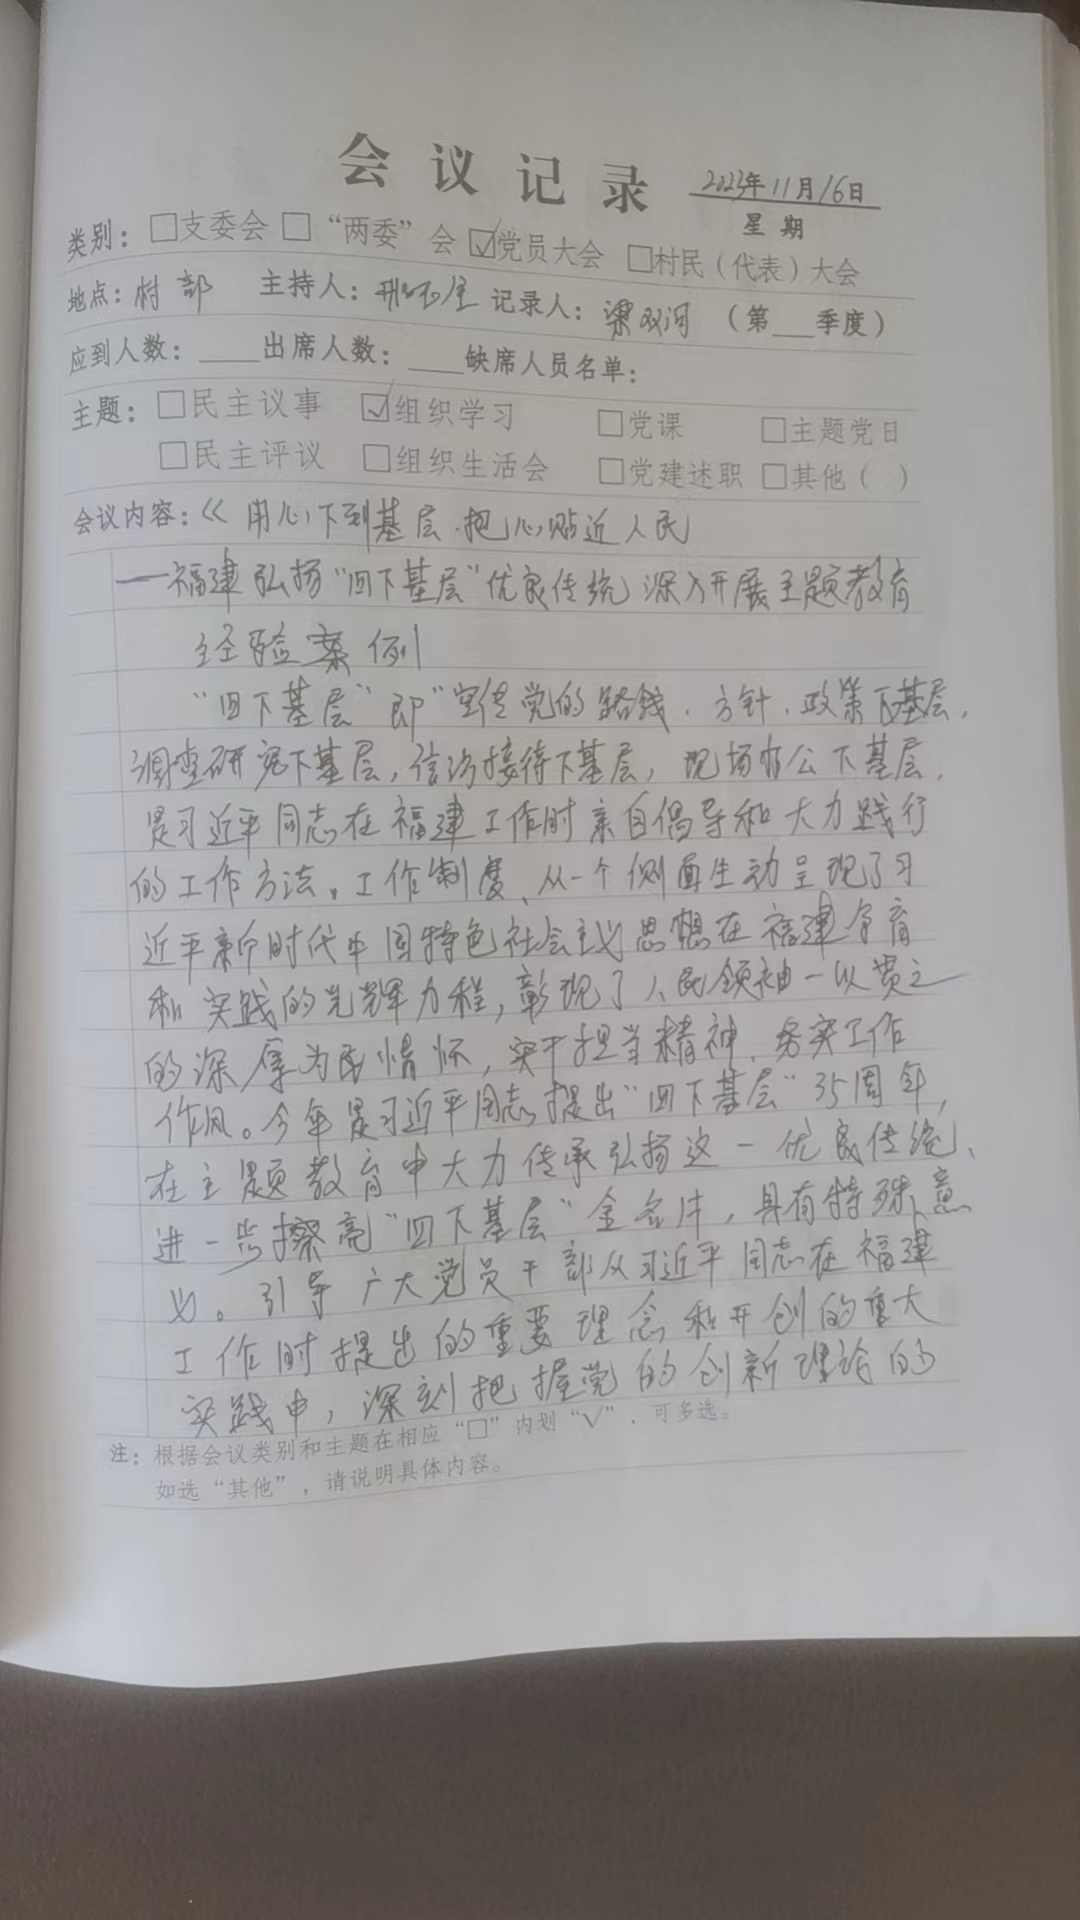 会议记录 2023年11月16日
星期
类别：□支委会 □“两委”会 ☑党员大会 □村民（代表）大会
地点：村部 主持人： 记录人：梁双河 （第___季度）
应到人数：____出席人数：____缺席人员名单：
主题：□民主议事 ☑组织学习 □党课 □主题党日
□民主评议 □组织生活会 □党建述职 □其他（ ）
会议内容：《用心下到基层.把心贴近人民
——福建弘扬“四下基层”优良传统深入开展主题教育
经验案例
“四下基层”即“宣传党的路线、方针、政策下基层，
调查研究下基层，信访接待下基层，现场办公下基层，
是习近平同志在福建工作时亲自倡导和大力践行
的工作方法、工作制度、从一个侧面生动呈现了习
近平新时代中国特色社会主义思想在福建孕育
和实践的光辉历程，彰现了人民领袖一以贯之
的深厚为民情怀，实干担当精神、务实工作
作风。今年是习近平同志提出“四下基层”35周年，
在主题教育中大力传承弘扬这一优良传统、
进一步擦亮“四下基层”金名片，具有特殊意
义。引导广大党员干部从习近平同志在福建
工作时提出的重要理念和开创的重大
实践中，深刻把握党的创新理论的
注：根据会议类别和主题在相应“□”内划“√”，可多选。
如选“其他”，请说明具体内容。